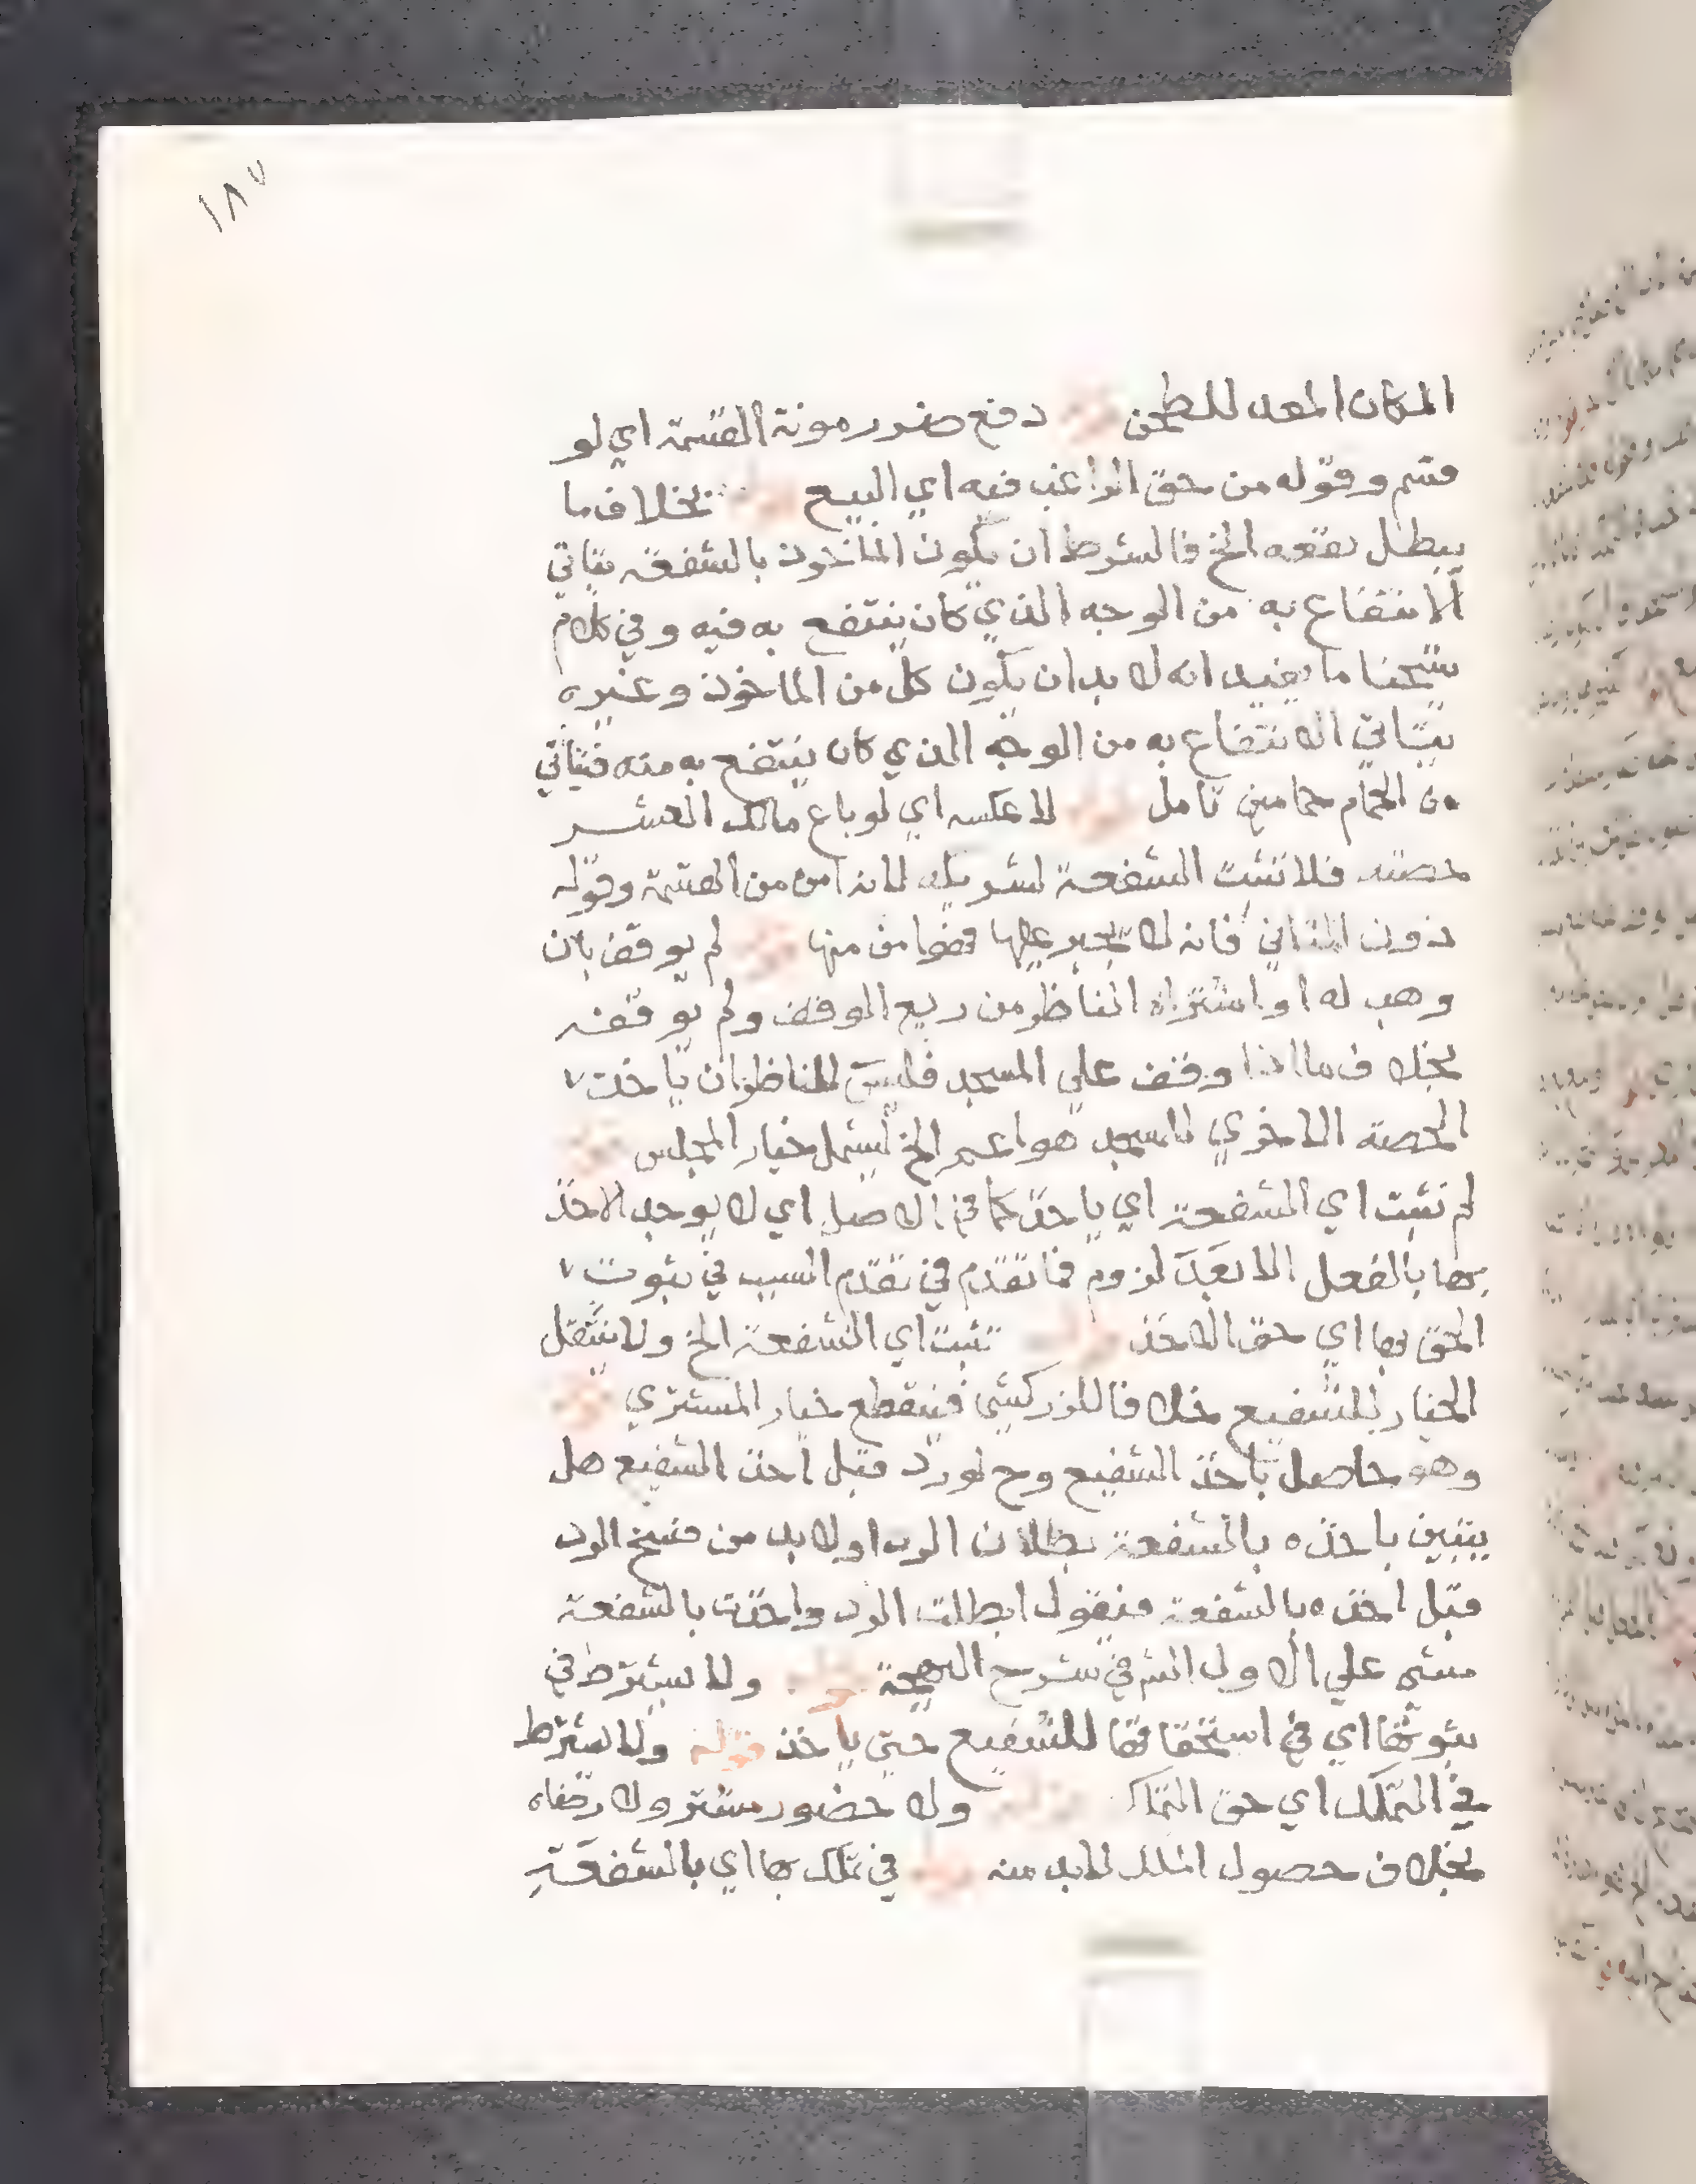 ١٨٧
المكان المعد للطحن دفع ضرر مونة القسمة اي لو
قسم وقوله من حق الراغب فيه اي البيع بخلاف ما
يبطل نفعه الخ فالشرط ان يكون الماخوذ بالشفعة يتاتي
الانتفاع به من الوجه الذي كان ينتفع به فيه وفي كلام
شيخنا ما يفيد انه لا بد ان يكون كل من الماخوذ وغيره
يتاتي الانتفاع به من الوجه الذي كان ينتفع به منه فيتاتي
من الحمام حمامين تامل لا عكسه اي لو باع مالك العشر
حصته فلا تثبت الشفعة لشريكه لانه امن من القسمة وقوله
دون الثاني فانه لا يجبر عليها فهو امن منها لم يوقف بان
وهب له او اشتراه الناظر من ريع الوقف ولم يوقفه
بخلاف ما اذا وقف علي المسجد فليس للناظر ان ياخذ
الحصة الاخري للمسجد هو اعم الخ ليشمل خيار المجلس
لم تثبت اي الشفعة اي ياخذ كما في الاصل اي لا يوجد الاخذ
بها بالفعل الا بعد لزوم فما تقدم في تقدم السبب في ثبوت
الحق بها اي حق الاخذ تثبت اي الشفعة الخ ولا ينتقل
الخيار للشفيع خلافا للزركشي فينقطع خيار المشتري
وهو حاصل باخذ الشفيع وح لو رد قبل اخذ الشفيع هل
يتبين باخذه بالشفعة بطلان الرد او لا بد من فسخ الرد
قبل اخذه بالشفعة فيقول ابطلت الرد واخذت بالشفعة
مشي علي الاول الش في شرح البهجة ولا يشترط في
ثبوتها اي في استحقاقها للشفيع حتي ياخذ قوله ولا يشترط
في التملك اي حق التملك ولا حضور مشتر ولا رضاه
بخلاف حصول الملك لا بد منه في تملك بها اي بالشفعة